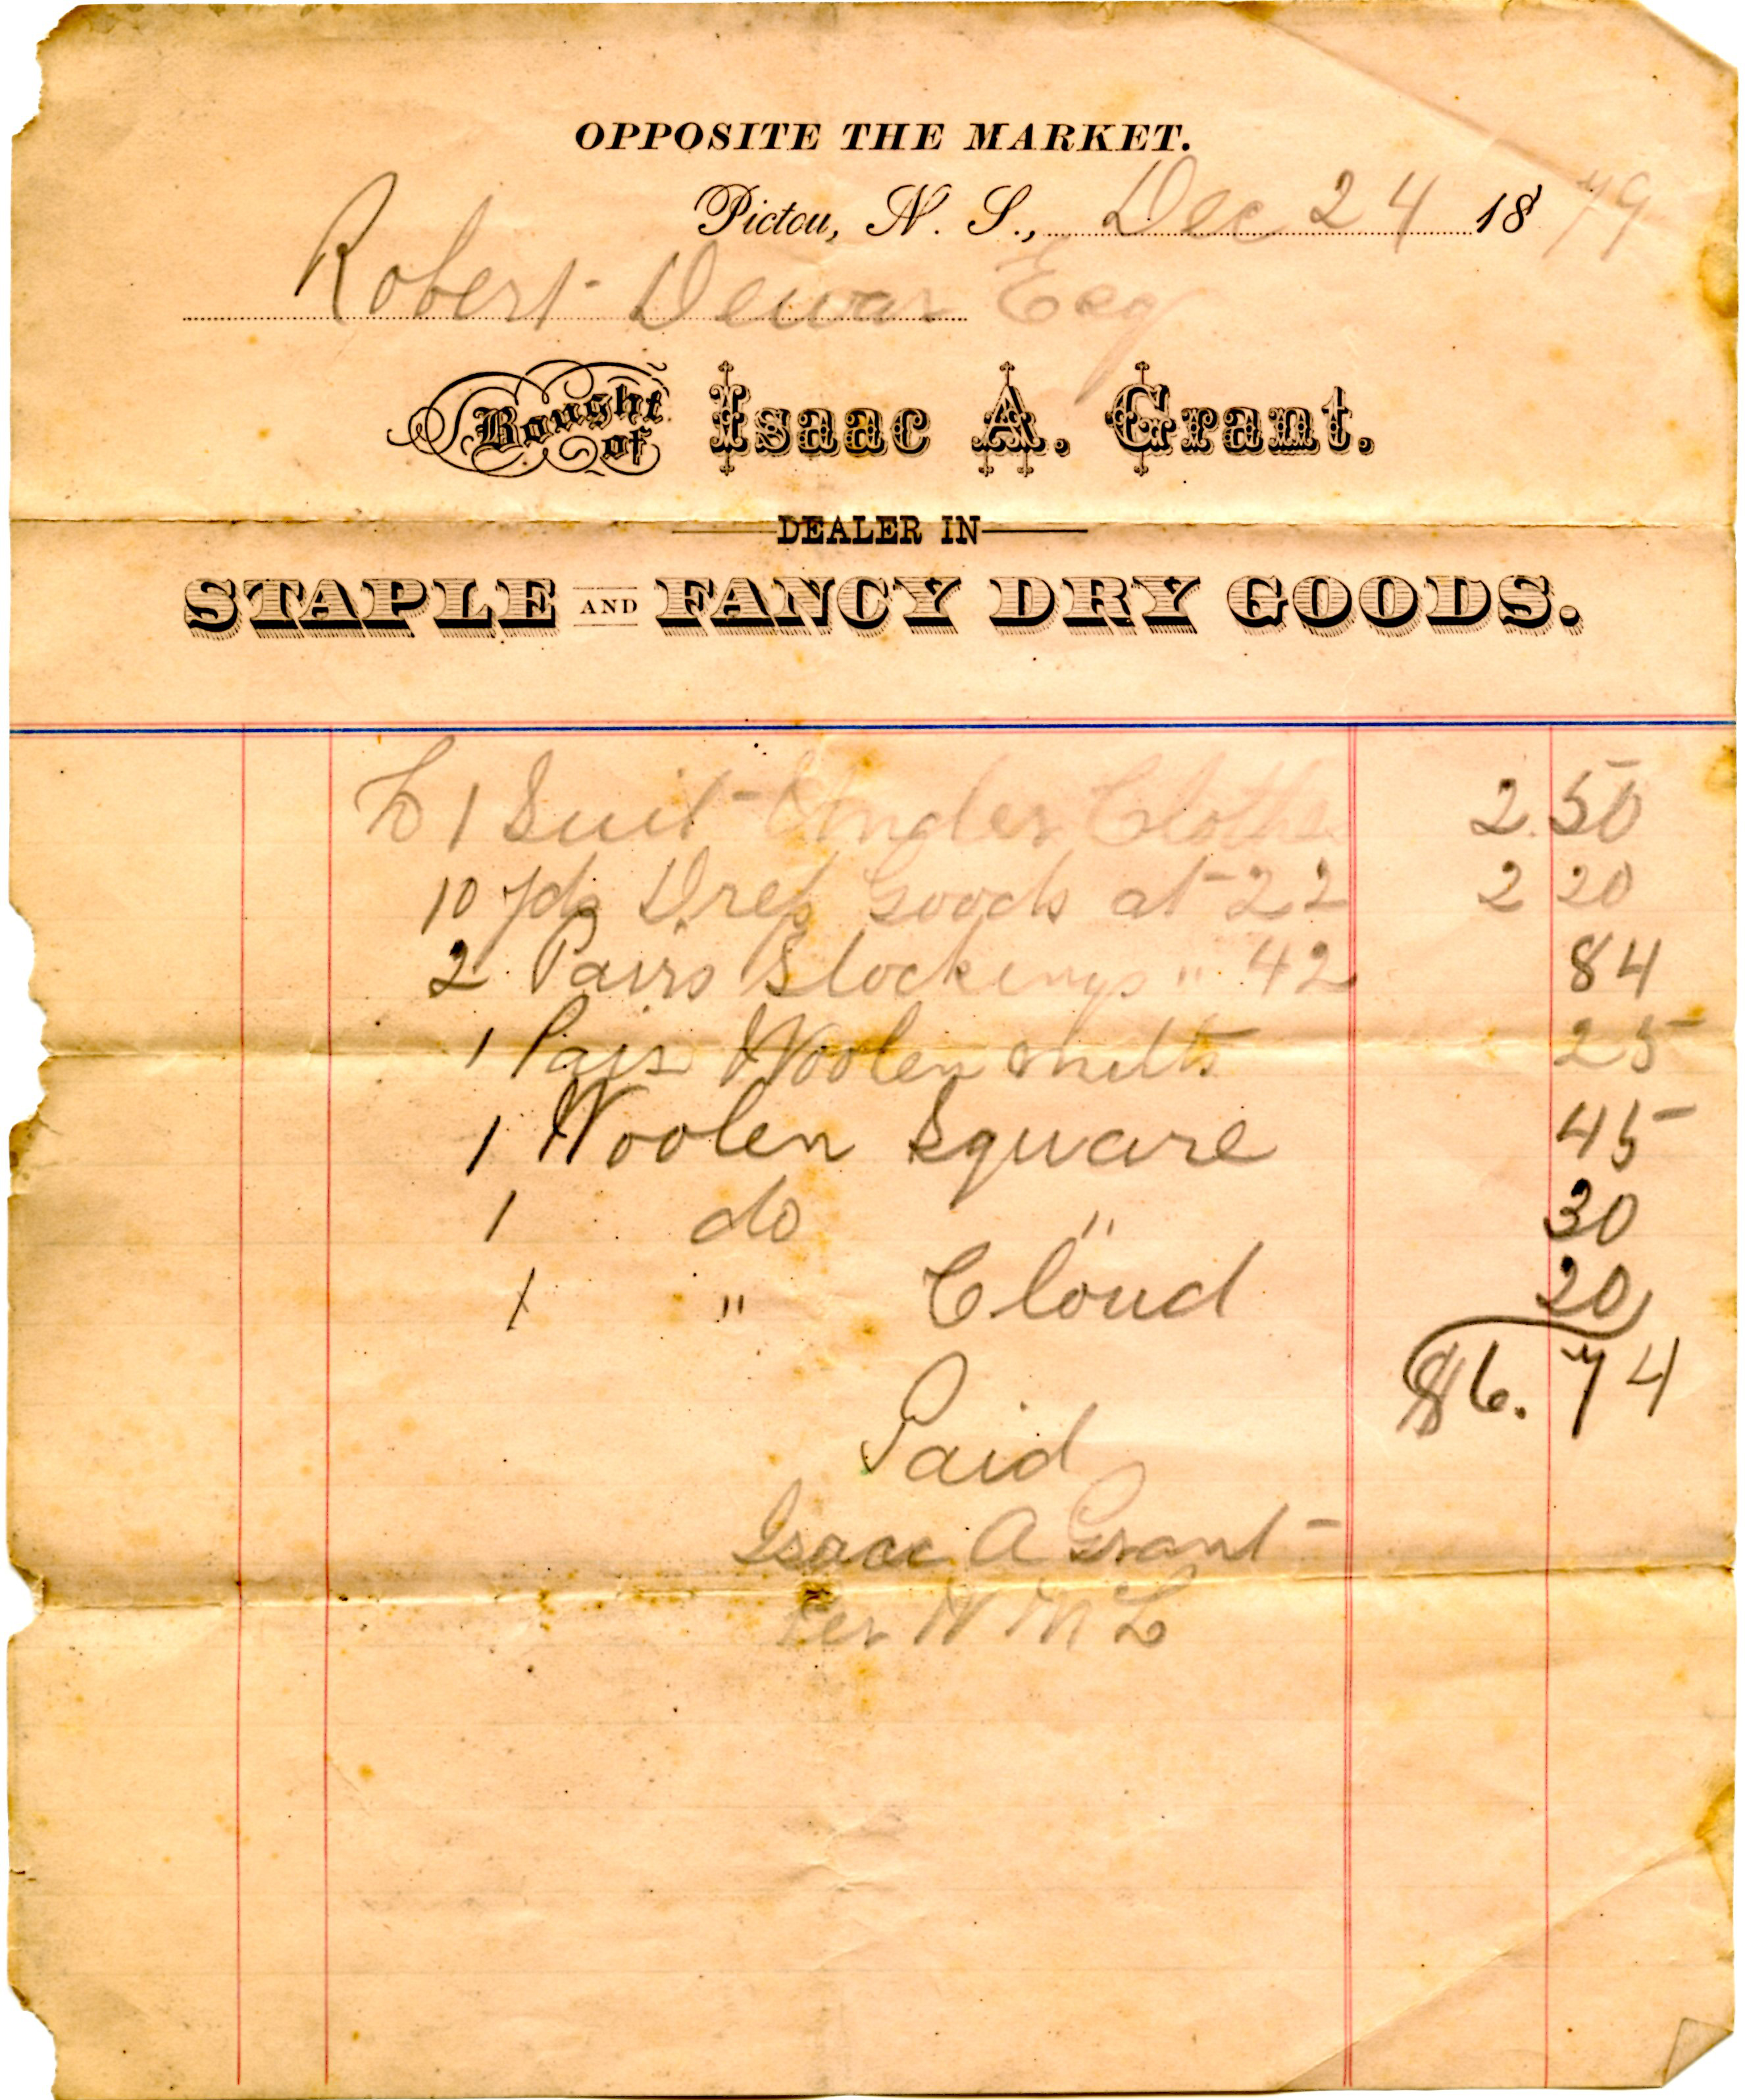 OPPOSITE THE MARKET.
Pictou, N. S., Dec 24 1879
Robert Dewar Esq
Bought of Isaac A. Grant.
DEALER IN
STAPLE AND FANCY DRY GOODS.
To 1 Suit Under Cloths 2 50
10 yds Dress Goods at 22 2 20
2 Pairs Stockings " 42 84
1 Pair Woolen Mitts 25
1 Woolen Square 45
1 do " 30
1 " Cloud 20
$6.74
Paid
Isaac A Grant
Per W M L